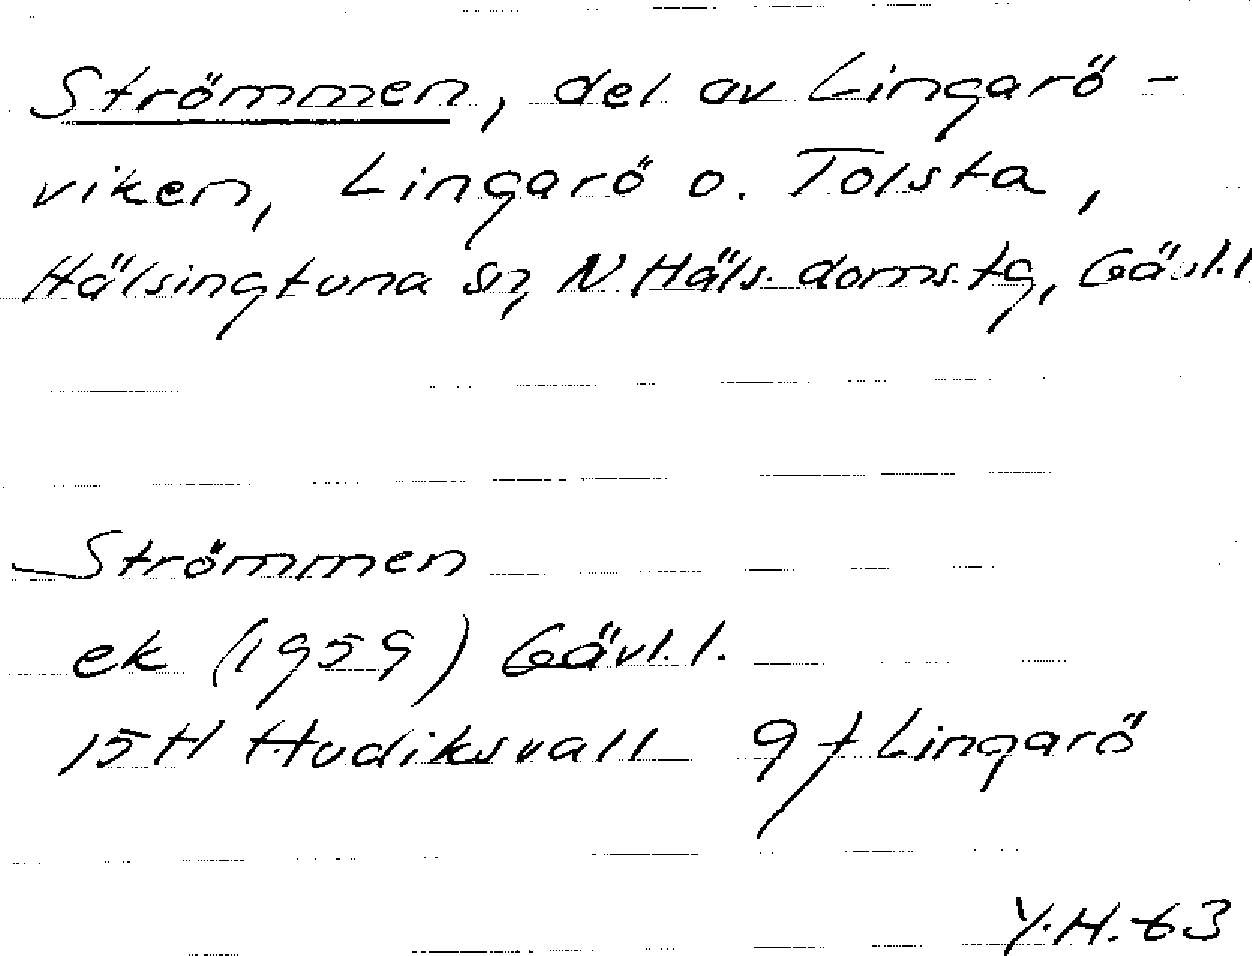 Strömmen, del av Lingarö-
viken, Lingarö o. Tolsta,
Hälsingtuna sn, N Häls. domstg, Gävl.l
Strömmen
ek (1959) Gävl.l.
15H Hudiksvall 9f Lingarö
Y.H. 63